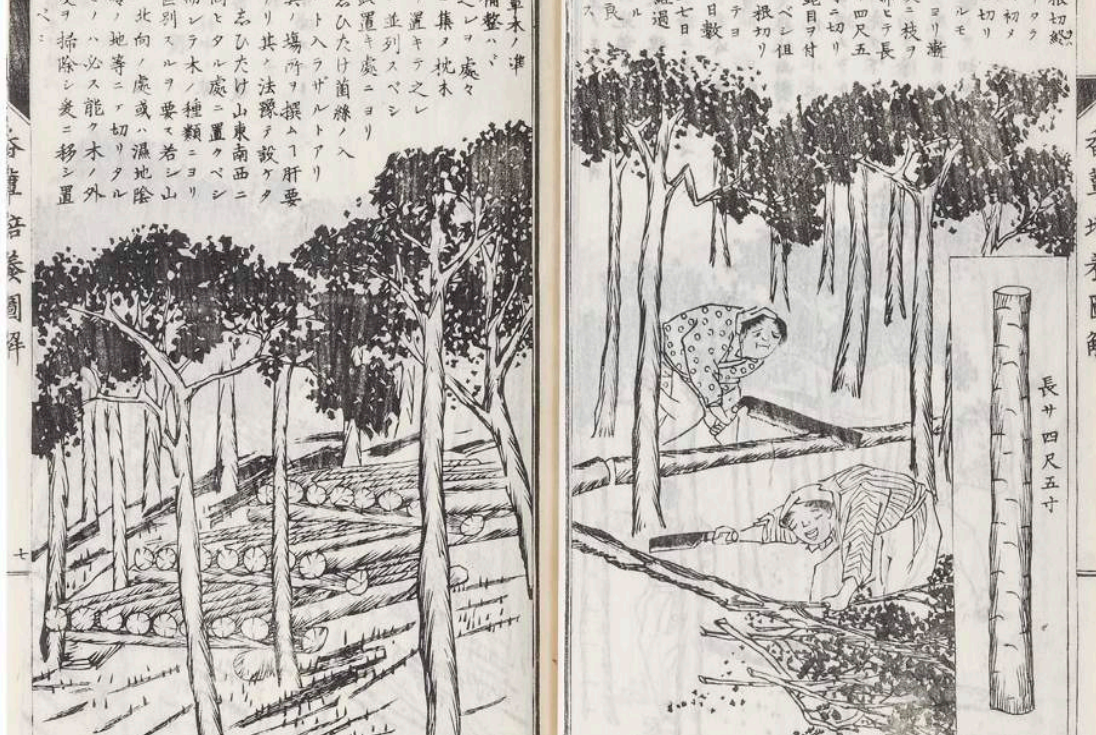 根切終
初メ
切リ
ルモ
ヨリ漸
枝ヲ
ヒテ長
四尺五
切リ
蛇目ヲ付
ベシ但
根切リ
テヨ
日數
七日
經過
ル
良
ス
長サ四尺五寸
草木ノ準
備整ハヾ
レヲ處々
集メ枕木
置キテ之レ
並列スベシ
置キ處ニヨリ
志ひたけ菌絲ノ入
ト入ラザルトアリ
其ノ場所ヲ撰ムヿ肝要
ナリ其ノ法豫テ設ケタ
志ひたけ山東南西ニ
向ヒタル處ニ置クベシ
而シテ木ノ種類ニヨリ
區別スルヲ要ス若シ山
北向ノ處或ハ濕地陰
ノ地等ニテ切リタル
ノハ必ス能ク木ノ外
ヲ掃除シ爰ニ移シ置
ベシ
香蕈培養圖解
七